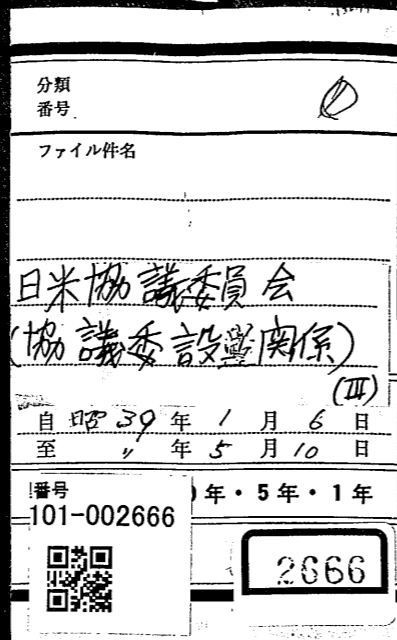 分類
番号
ファイル件名
日米協議委員会
(協議委設置関係)
(Ⅲ)
自 昭 39 年 1 月 6 日
至 〃 年 5 月 10 日
番号
年・5年・1年
101-002666
2666